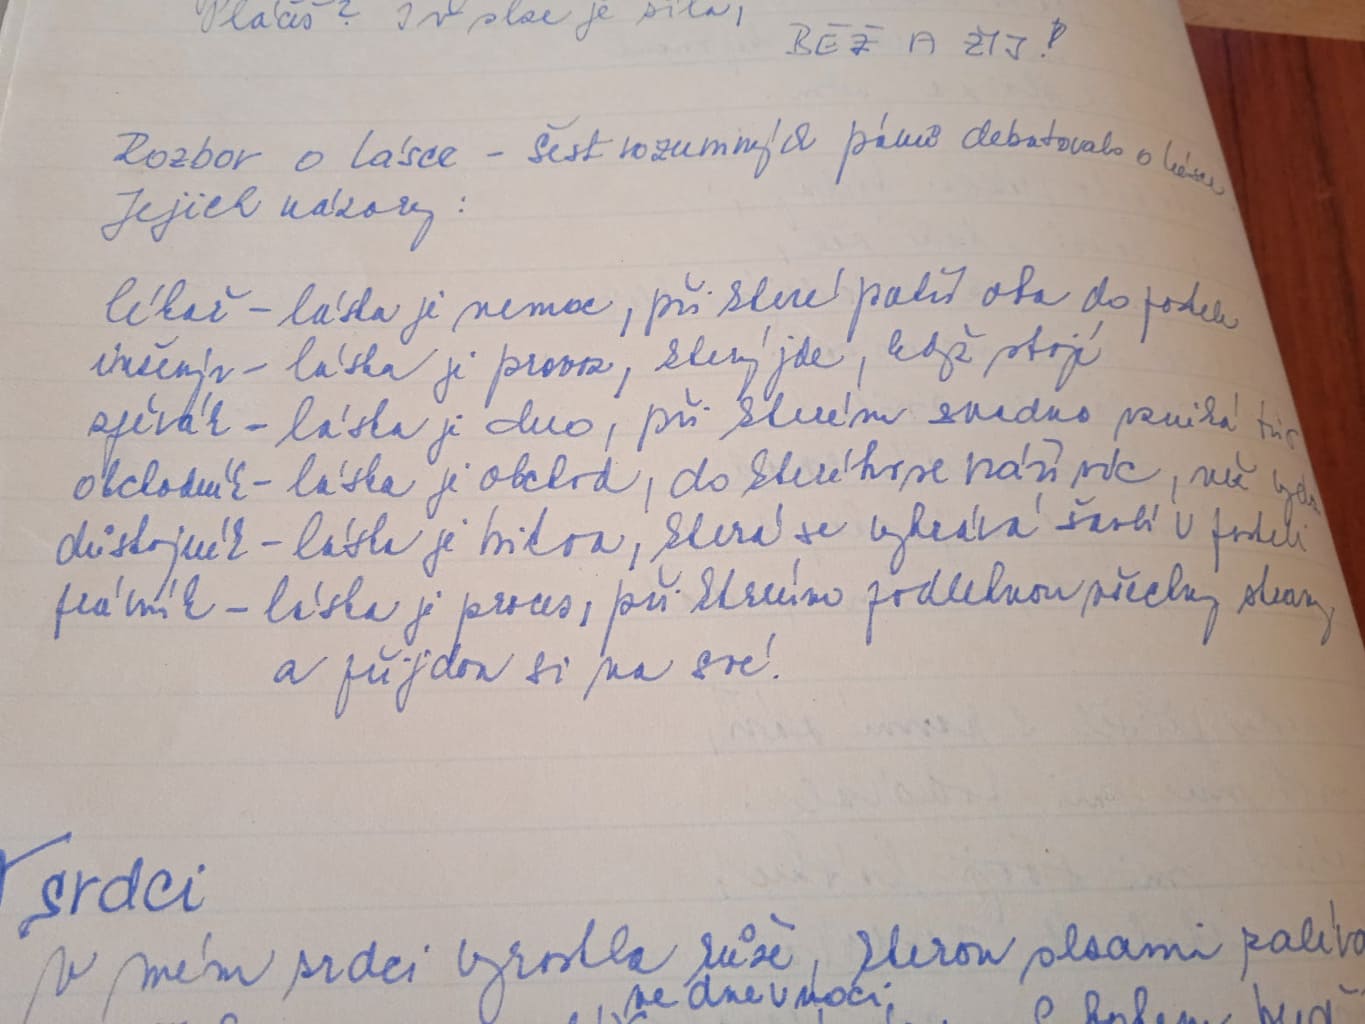 Pláčeš? I v slze je síla,
BĚŽ A ŽIJ!
Rozbor o lásce - šest rozumných pánů debatovalo o lásce
Jejich názory:
lékař - láska je nemoc, při které patří oba do postele
inženýr - láska je provoz, který jde, když stojí
zpěvák - láska je duo, při kterém snadno vzniká trio
obchodník - láska je obchod, do kterého se vráží víc, než vydá
důstojník - láska je bitva, která se vyhrává šavlí v posteli
právník - láska je proces, při kterém podlehnou všechny strany
a přijdou si na své!
V srdci
V mém srdci vyrostla růže, kterou slzami zalévá
ve dne v noci,